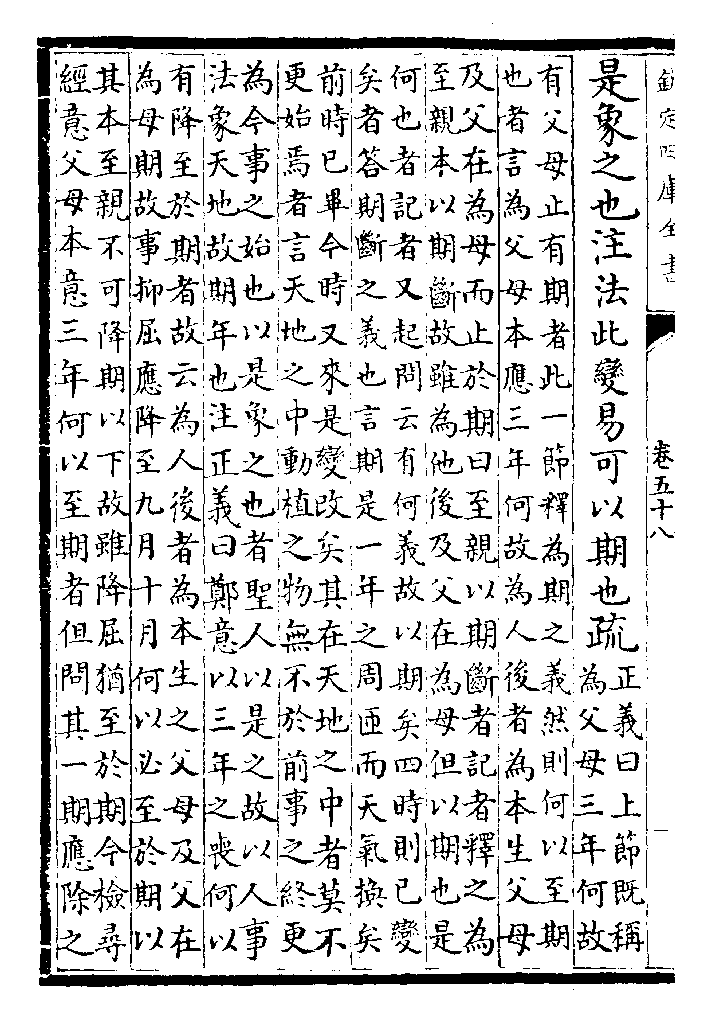 欽定四庫全書
卷五十八
是象之也注法此變易可以期也疏
正義曰上節既稱
為父母三年何故
有父母止有期者此一節釋為期之義然則何以至期
也者言為父母本應三年何故為人後者為本生父母
及父在為母而止於期曰至親以期斷者記者釋之為
至親本以期斷故雖為他後及父在為母但以期也是
何也者記者又起問云有何義故以期矣四時則已變
矣者答期斷之義也言期是一年之周匝而天氣換矣
前時已畢今時又來是變改矣其在天地之中者莫不
更始焉者言天地之中動植之物無不於前事之終更
為今事之始也以是象之也者聖人以是之故以人事
法象天地故期年也注正義曰鄭意以三年之喪何以
有降至於期者故云為人後者為本生之父母及父在
為母期故事抑屈應降至九月十月何以必至於期以
其本至親不可降期以下故雖降屈猶至於期今檢尋
經意父母本意三年何以至期者但問其一期應除之